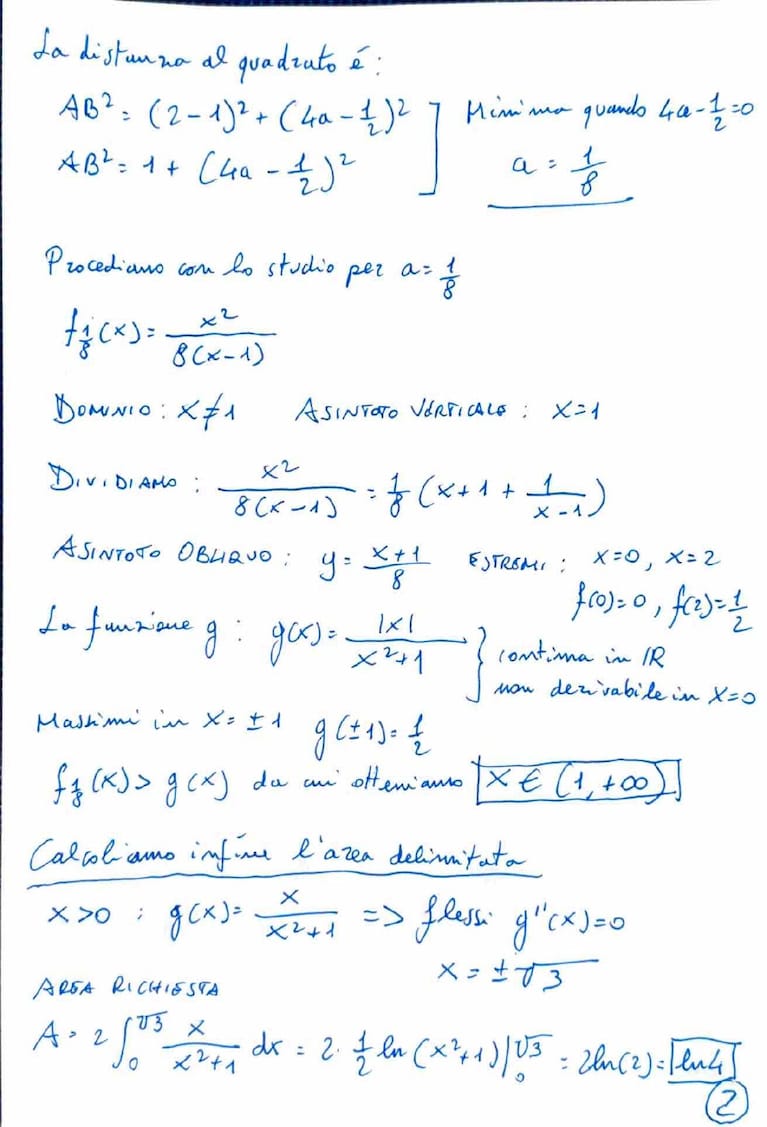 La distanza al quadrato é:
AB² = (2-1)² + (4a - 1/2)² ] Minima quando 4a - 1/2 = 0
AB² = 1 + (4a - 1/2)² ] a = 1/8
Procediamo con lo studio per a = 1/8
f1/8(x) = x²/8(x-1)
DOMINIO: x ≠ 1 ASINTOTO VERTICALE: x=1
DIVIDIAMO: x²/8(x-1) = 1/8 (x+1 + 1/x-1)
ASINTOTO OBLIQUO: y = x+1/8 ESTREMI: x=0, x=2
f(0)=0, f(2)=1/2
La funzione g: g(x) = |x|/x²+1 } continua in IR
non derivabile in x=0
Massimi in x = ±1 g(±1) = 1/2
f1/8(x) > g(x) da cui otteniamo x ∈ (1, +∞)
Calcoliamo infine l'area delimitata
x>0 : g(x) = x/x²+1 => flessi g''(x)=0
x = ±√3
AREA RICHIESTA
A = 2 ∫₀^√3 x/x²+1 dx = 2 · 1/2 ln (x²+1) |₀^√3 = 2ln(2) = ln4
2